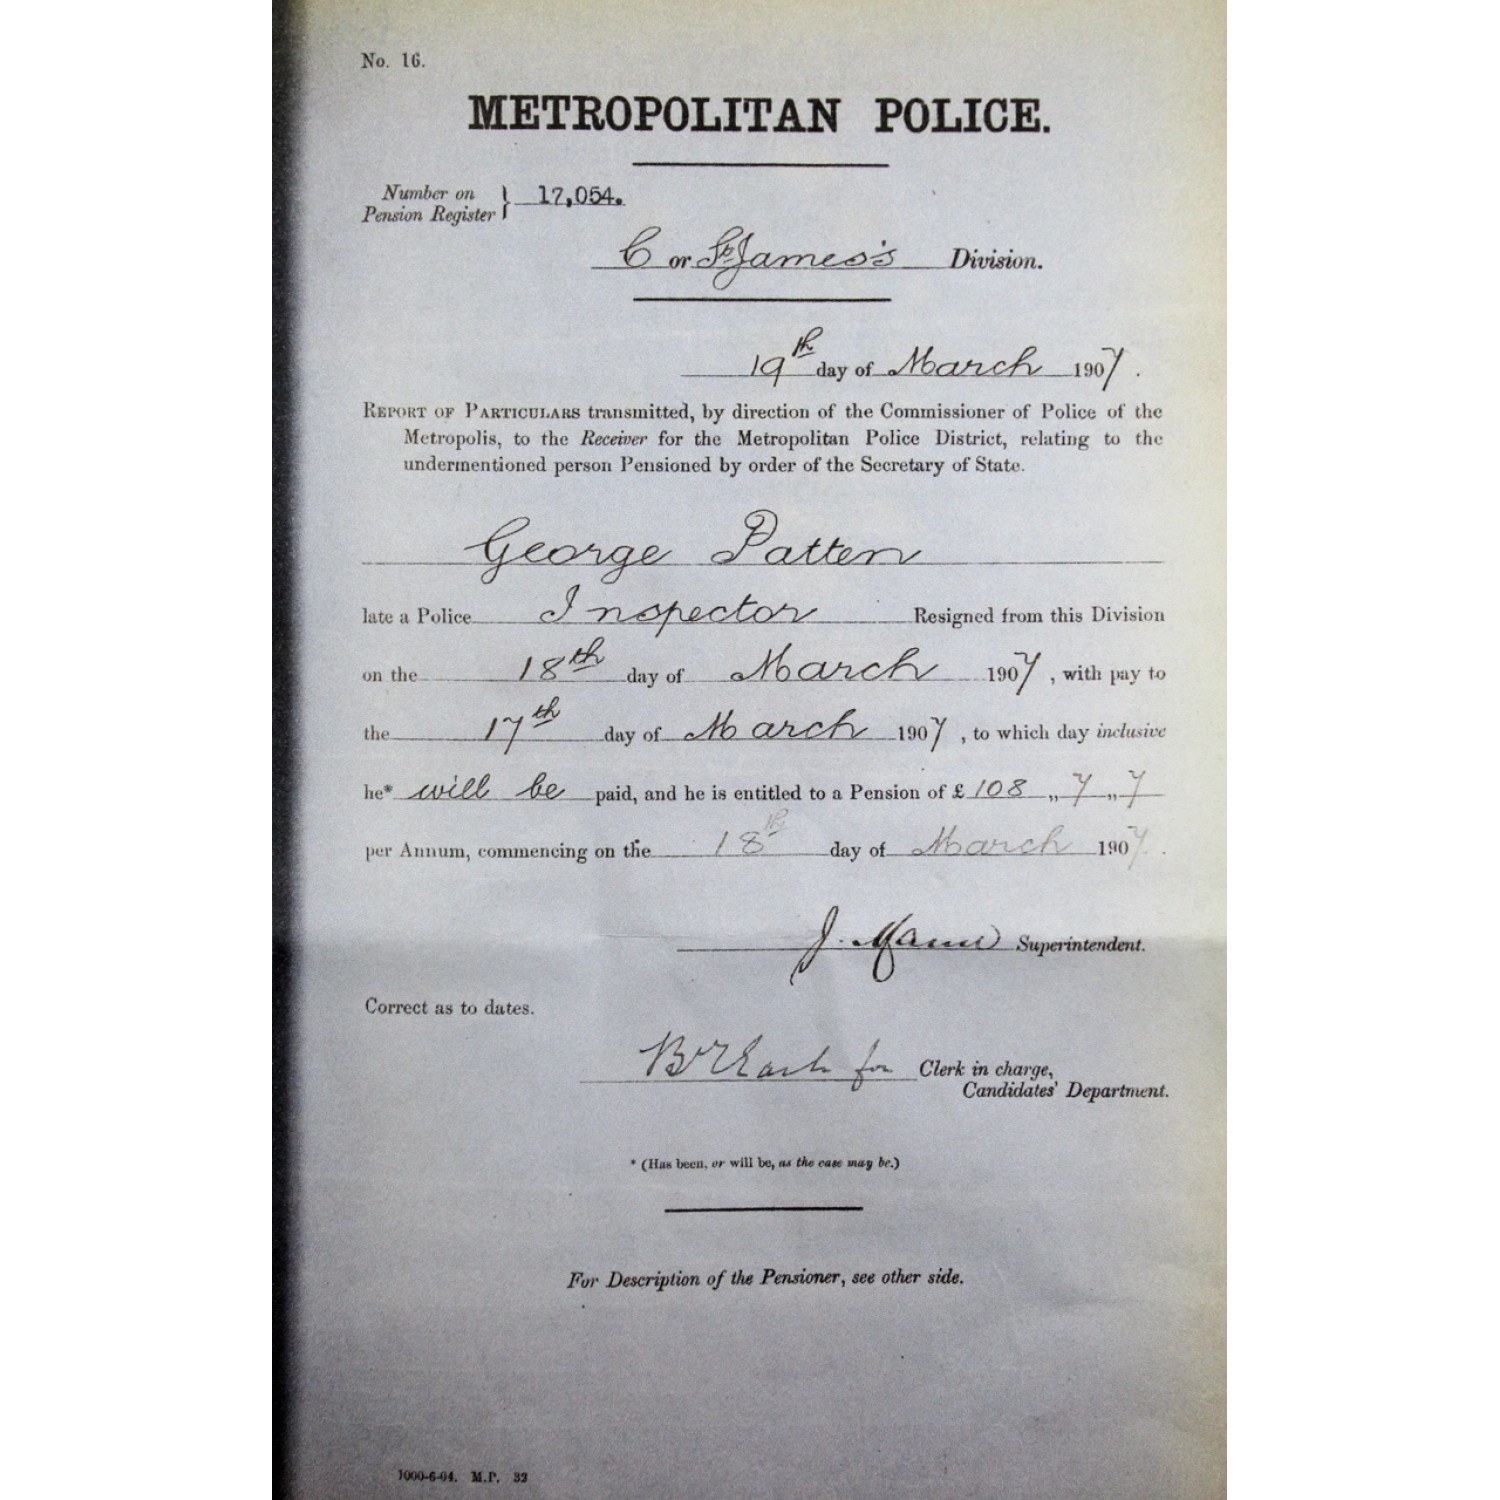 No. 16.
METROPOLITAN POLICE.
Number on
Pension Register } 17,054.
C or St James's Division.
19th day of March 1907.
REPORT OF PARTICULARS transmitted, by direction of the Commissioner of Police of the
Metropolis, to the Receiver for the Metropolitan Police District, relating to the
undermentioned person Pensioned by order of the Secretary of State.
George Patten
late a Police Inspector Resigned from this Division
on the 18th day of March 1907, with pay to
the 17th day of March 1907, to which day inclusive
he* will be paid, and he is entitled to a Pension of £ 108 „ 7 „ 7
per Annum, commencing on the 18th day of March 1907.
J. Mann Superintendent.
Correct as to dates.
for Clerk in charge,
Candidates' Department.
* (Has been, or will be, as the case may be.)
For Description of the Pensioner, see other side.
1000-6-04. M.P. 32